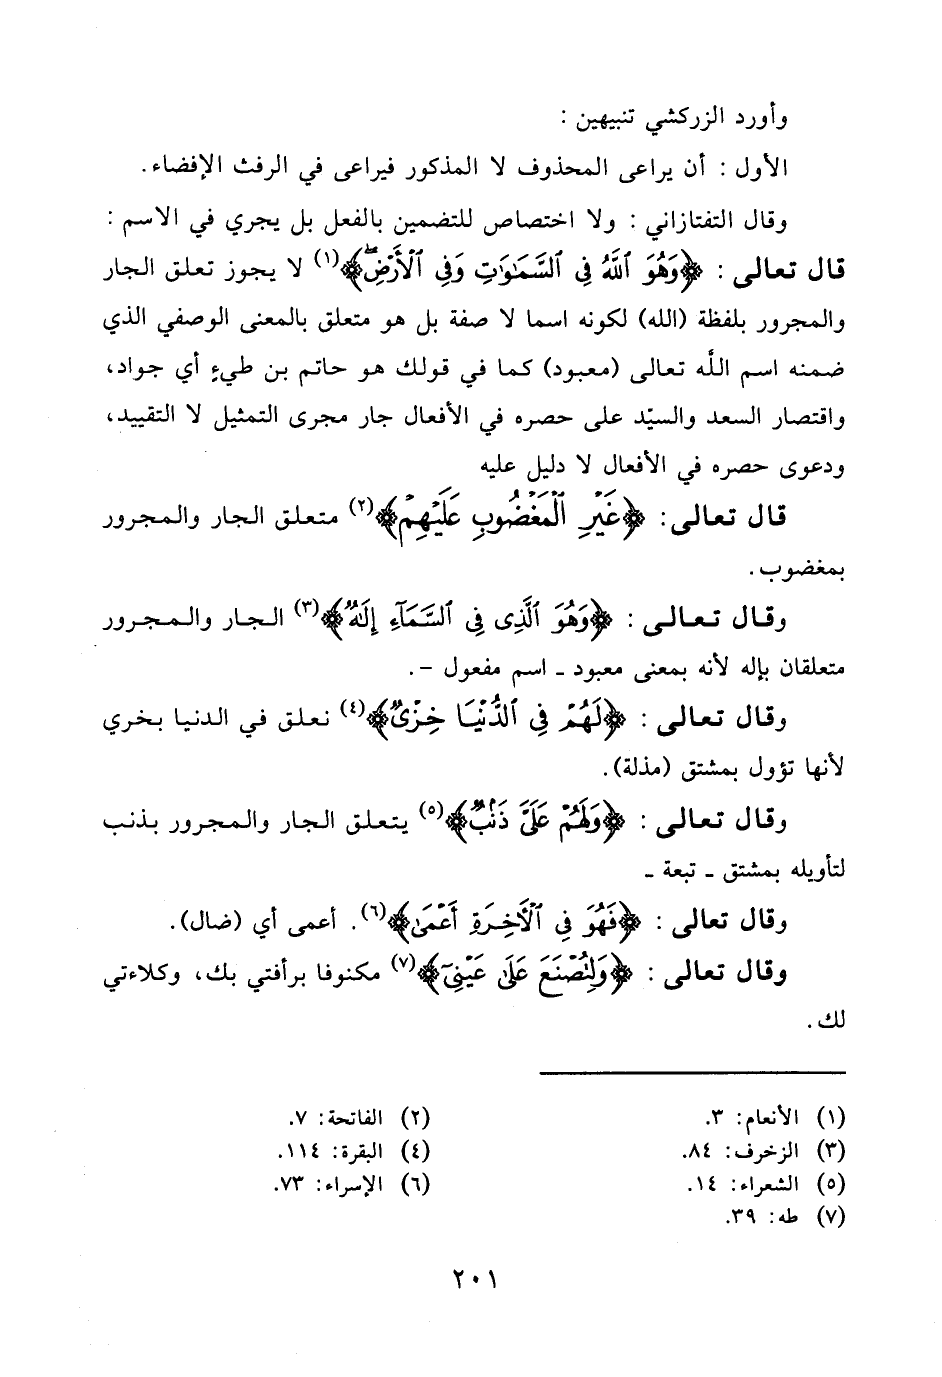 وأورد الزركشي تنبيهين :
الأول : أن يراعى المحذوف لا المذكور فيراعى في الرفث الإفضاء.
وقال التفتازاني : ولا اختصاص للتضمين بالفعل بل يجري في الاسم :
قال تعالى : ﴿وَهُوَ ٱللَّهُ فِى ٱلسَّمَٰوَٰتِ وَفِى ٱلْأَرْضِۖ﴾(١) لا يجوز تعلق الجار
والمجرور بلفظة (الله) لكونه اسما لا صفة بل هو متعلق بالمعنى الوصفي الذي
ضمنه اسم اللَّه تعالى (معبود) كما في قولك هو حاتم بن طيءٍ أي جواد،
واقتصار السعد والسيّد على حصره في الأفعال جار مجرى التمثيل لا التقييد،
ودعوى حصره في الأفعال لا دليل عليه
قال تعالى: ﴿غَيْرِ ٱلْمَغْضُوبِ عَلَيْهِمْ﴾(٢) متعلق الجار والمجرور
بمغضوب.
وقال تعالى : ﴿وَهُوَ ٱلَّذِى فِى ٱلسَّمَآءِ إِلَٰهٌ﴾(٣) الجار والمجرور
متعلقان بإله لأنه بمعنى معبود ـ اسم مفعول -.
وقال تعالى : ﴿لَهُمْ فِى ٱلدُّنْيَا خِزْىٌ﴾(٤) نعلق في الدنيا بخري
لأنها تؤول بمشتق (مذلة).
وقال تعالى : ﴿وَلَهُمْ عَلَىَّ ذَنۢبٌ﴾(٥) يتعلق الجار والمجرور بذنب
لتأويله بمشتق ـ تبعة ـ
وقال تعالى : ﴿فَهُوَ فِى ٱلْأَخِرَةِ أَعْمَىٰ﴾(٦). أعمى أي (ضال).
وقال تعالى : ﴿وَلِتُصْنَعَ عَلَىٰ عَيْنِىٓ﴾(٧) مكنوفا برأفتي بك، وكلاءتي
لك.
(١) الأنعام: ٣. (٢) الفاتحة: ٧.
(٣) الزخرف: ٨٤. (٤) البقرة: ١١٤.
(٥) الشعراء: ١٤. (٦) الإسراء: ٧٣.
(٧) طه: ٣٩.
٢٠١